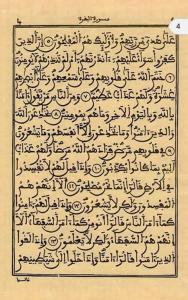 سورة البقرة
4
على هدى من ربهم وأولئك هم المفلحون إن الذين
كفروا سواء عليهم ءأنذرتهم أم لم تنذرهم لا يؤمنون
ختم الله على قلوبهم وعلى سمعهم وعلى أبصرهم
غشوة ولهم عذاب عظيم ومن الناس من يقول
ءامنا بالله وباليوم الآخر وما هم بمؤمنين يخدعون
الله والذين ءامنوا وما يخدعون إلا أنفسهم وما يشعرون
في قلوبهم مرض فزادهم الله مرضا ولهم عذاب
أليم بما كانوا يكذبون وإذا قيل لهم لا تفسدوا
في الأرض قالوا إنما نحن مصلحون ألا إنهم هم
المفسدون ولكن لا يشعرون وإذا قيل لهم ءامنوا
كما ءامن الناس قالوا أنؤمن كما ءامن السفهاء ألا
إنهم هم السفهاء ولكن لا يعلمون وإذا لقوا
الذين ءامنوا قالوا ءامنا وإذا خلوا إلى شيطينهم
قالوا